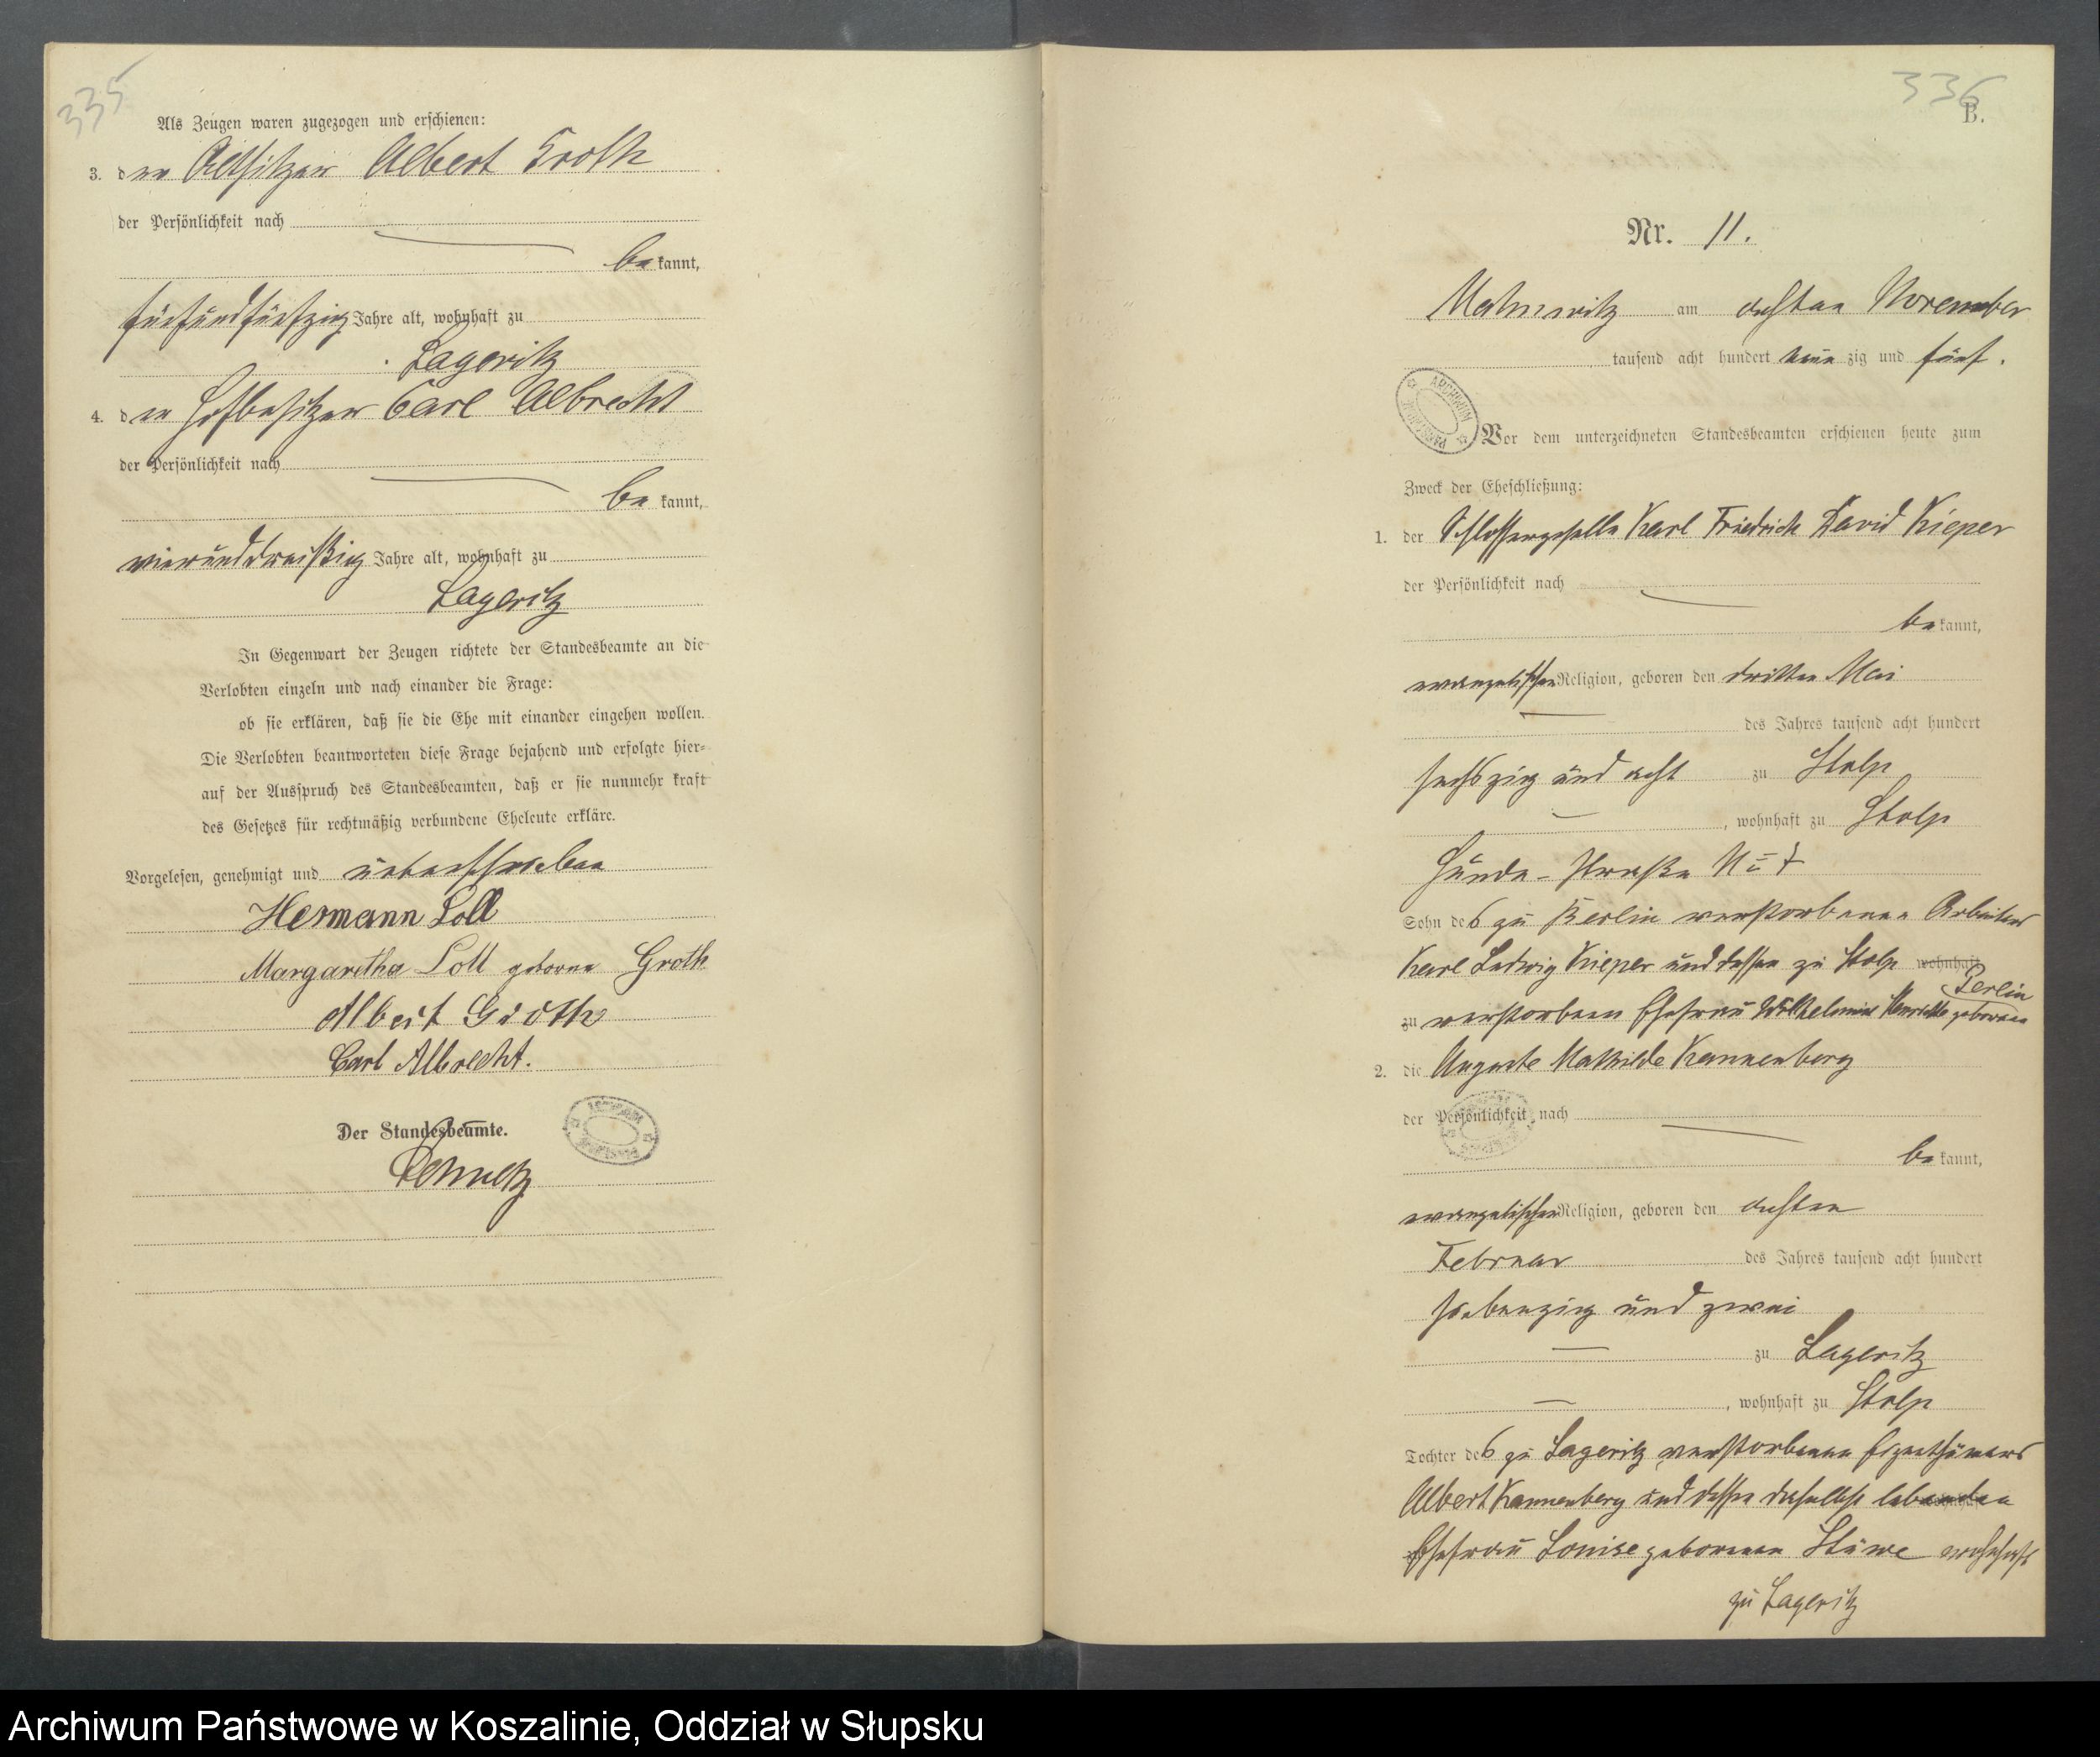 335
Als Zeugen waren zugezogen und erschienen:
3. der Altsitzer Albert Groth
der Persönlichkeit nach
be kannt,
fünfundfünfzig Jahre alt, wohnhaft zu
Lageritz
4. der Hofbesitzer Carl Albrecht
der Persönlichkeit nach
be kannt,
vierunddreißig Jahre alt, wohnhaft zu
Lageritz
In Gegenwart der Zeugen richtete der Standesbeamte an die
Verlobten einzeln und nach einander die Frage:
ob sie erklären, daß sie die Ehe mit einander eingehen wollen.
Die Verlobten beantworteten diese Frage bejahend und erfolgte hier-
auf der Ausspruch des Standesbeamten, daß er sie nunmehr kraft
des Gesetzes für rechtmäßig verbundene Eheleute erkläre.
Vorgelesen, genehmigt und unterschrieben
Hermann Soll
Margaretha Soll geborne Groth
Albert Groth
Carl Albrecht.
Der Standesbeamte.
336
B.
Nr. 11.
Malmwitz am achten November
tausend acht hundert neun zig und fünf.
Vor dem unterzeichneten Standesbeamten erschienen heute zum
Zweck der Eheschließung:
1. der Schlossergeselle Karl Friedrich David Kieper
der Persönlichkeit nach
be kannt,
evangelischer Religion, geboren den dritten Mai
des Jahres tausend acht hundert
sechszig und acht zu Stolp
, wohnhaft zu Stolp
Sohn des zu Berlin verstorbenen Arbeiters
Karl Ludwig Kieper und dessen zu Stolp wohnhaft
Perlin
zu verstorbenen Ehefrau Wilhelmine Henriette geborenen
2. die Auguste Mathilde Kannenberg
der Persönlichkeit nach
be kannt,
evangelischer Religion, geboren den achten
Februar des Jahres tausend acht hundert
siebenzig und zwei
zu Lageritz
, wohnhaft zu Stolp
Tochter des zu Lageritz verstorbenen Eigenthümers
Albert Kannenberg und dessen daselbst lebenden
Ehefrau Louise geborenen Stüwe wohnhaft
zu Lageritz
Archiwum Państwowe w Koszalinie, Oddział w Słupsku